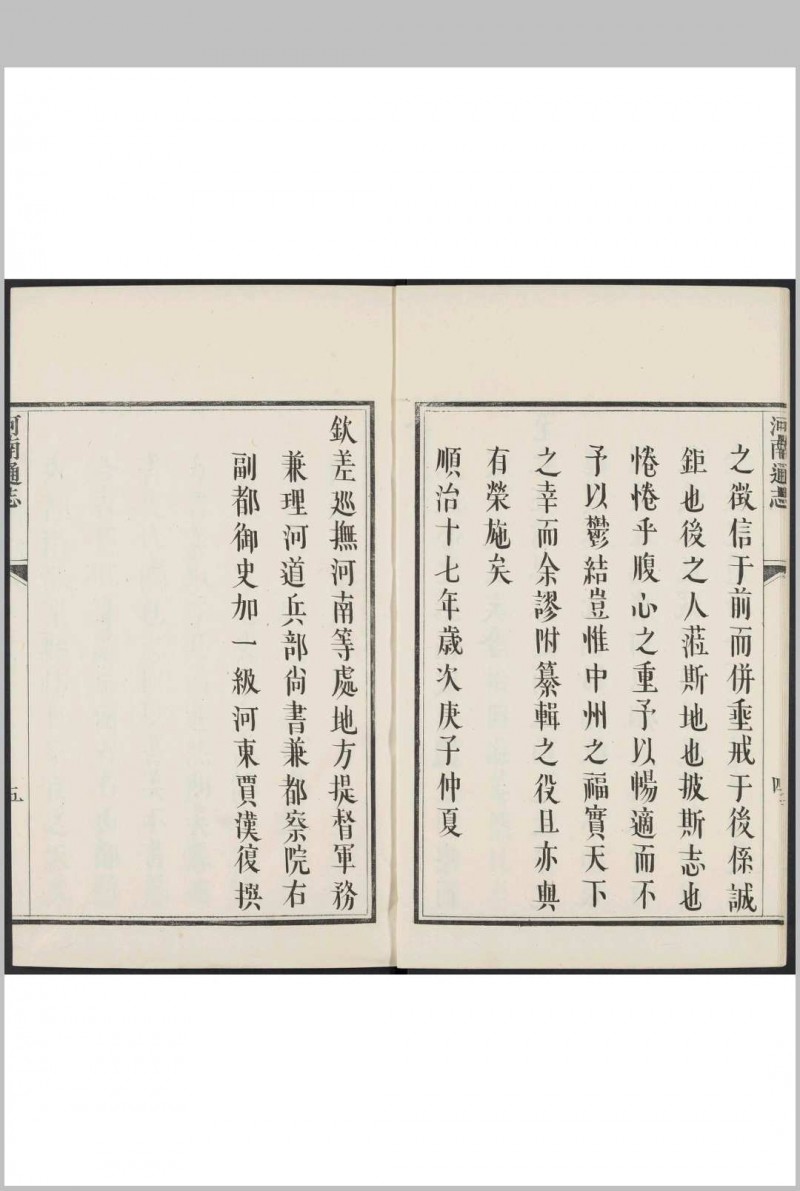 河南通志
四
之徵信于前而併垂戒于後係誠
鉅也後之人蒞斯地也披斯志也
惓惓乎腹心之重予以暢適而不
予以鬱結豈惟中州之福實天下
之幸而余謬附纂輯之役且亦與
有榮施矣
順治十七年歲次庚子仲夏
欽差巡撫河南等處地方提督軍務
兼理河道兵部尚書兼都察院右
副都御史加一級河東賈漢復撰
河南通志
五